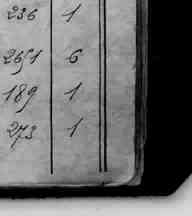 236 1
2651 6
189 1
273 1